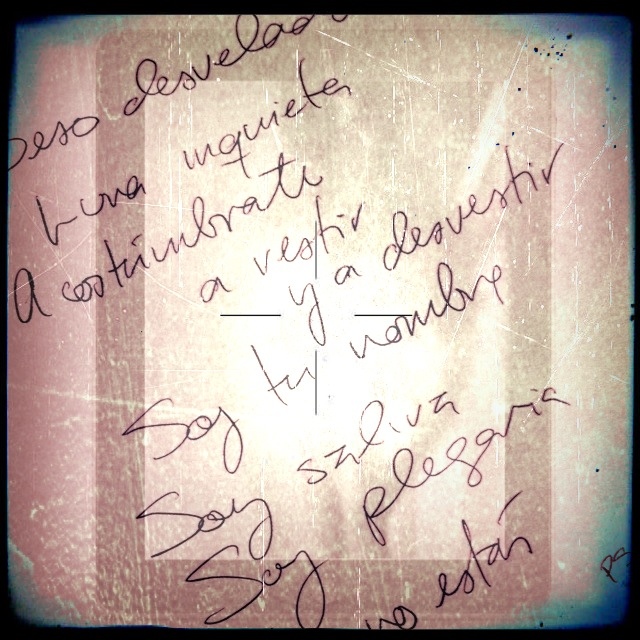 beso desvelado
Luna inquieta
Acostúmbrate
a vestir
y a desvestir
tu nombre
Soy saliva
Soy plegaria
Soy
no están